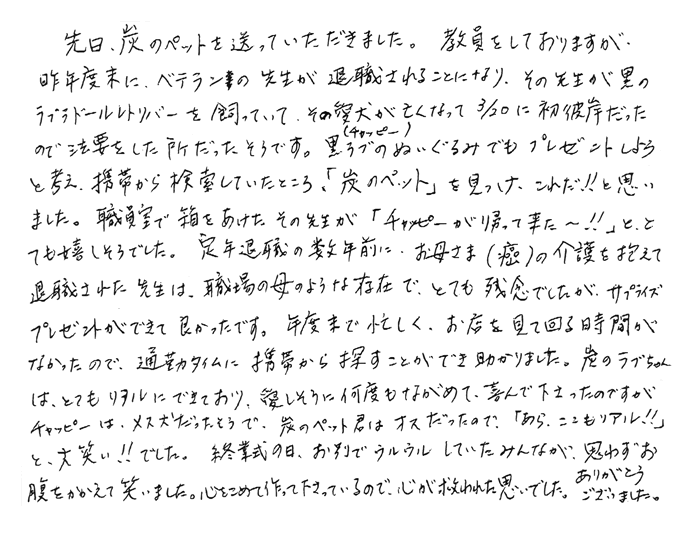 先日、炭のペットを送っていただきました。 教員をしておりますが、
昨年度末に、ベテランの先生が退職されることになり、その先生が黒の
ラブラドールレトリバーを飼っていて、その愛犬が亡くなって3/20に初彼岸だった
(チャッピー)
ので法要をした所だったそうです。黒ラブのぬいぐるみでもプレゼントしよう
と考え、携帯から検索していたところ、「炭のペット」を見つけ、これだ!!と思い
ました。職員室で箱をあけたその先生が「チャッピーが帰って来た〜!!」と、と
ても嬉しそうでした。 定年退職の数年前に、お母さま(癌)の介護を抱えて
退職された先生は、職場の母のような存在で、とても残念でしたが、サプライズ
プレゼントができて良かったです。 年度末で忙しく、お店を見て回る時間が
なかったので、通勤タイムに携帯から探すことができ助かりました。炭のラブちゃん
は、とてもリアルにできており、愛しそうに何度もながめて、喜んで下さったのですが
チャッピーは、メス犬だったそうで、炭のペット君はオスだったので、「あら、ここもリアル!!」
と、大笑い!!でした。 終業式の日、お別れでウルウルしていたみんなが、思わずお
腹をかかえて笑いました。心をこめて作って下さっているので、心が救われた思いでした。ありがとう
ございました。